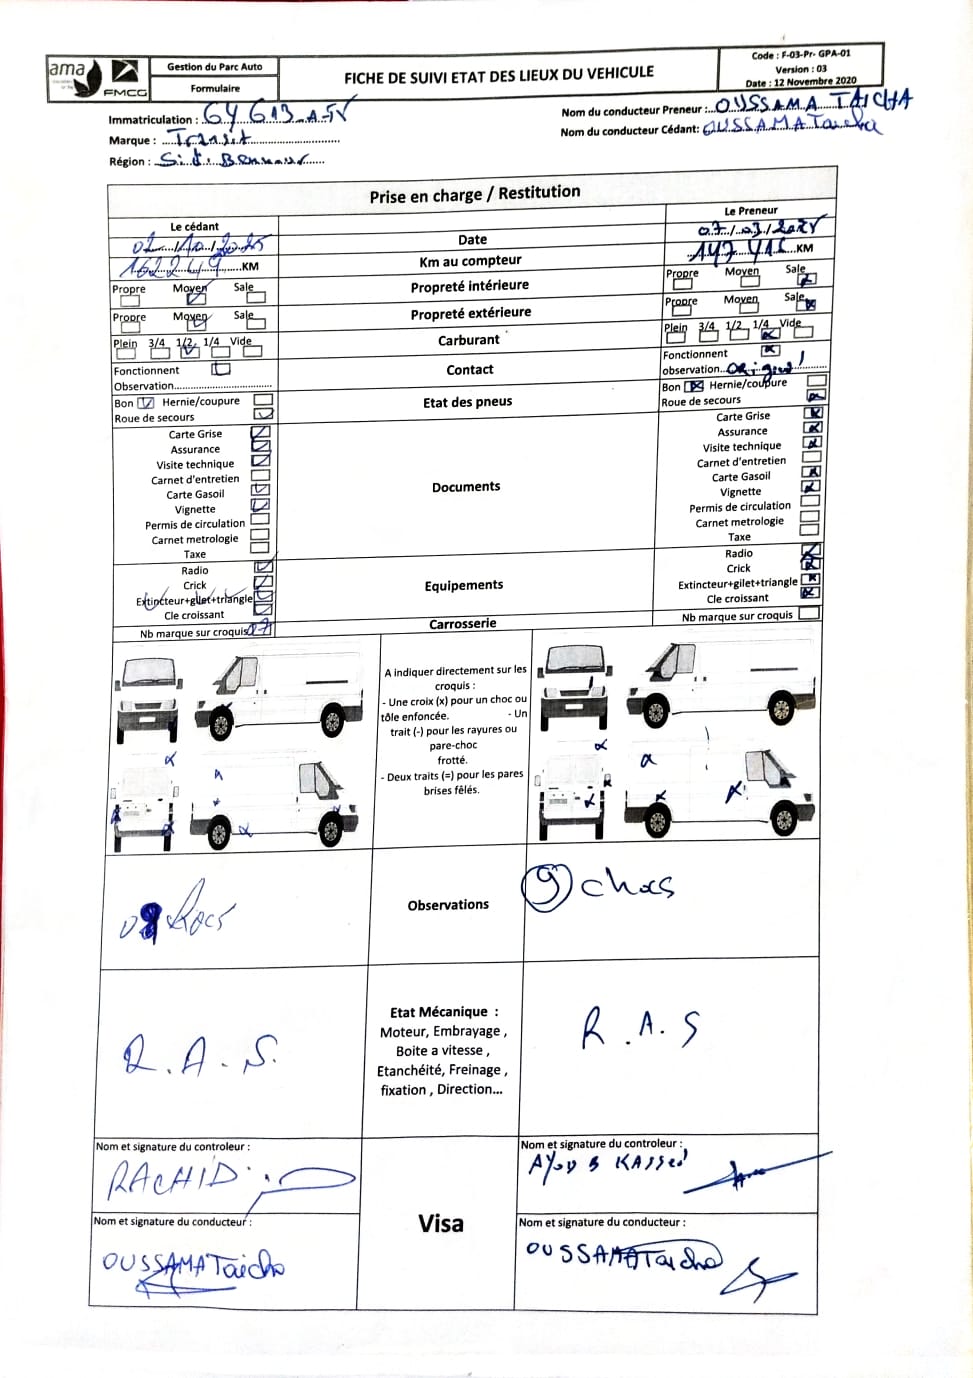 ama
FMCG
Gestion du Parc Auto
Formulaire
FICHE DE SUIVI ETAT DES LIEUX DU VEHICULE
Code : F-03-Pr- GPA-01
Version : 03
Date : 12 Novembre 2020
Immatriculation : GY 613-A-TV
Marque : Transit
Région :
Nom du conducteur Preneur : OUSSAMA TAICHA
Nom du conducteur Cédant: OUSSAMA Taicha
Prise en charge / Restitution
Le cédant
Le Preneur
02/10/2025
Date
07/03/2025
162249 KM
Km au compteur
KM
Propre Moyen Sale
Propreté intérieure
Propre Moyen Sale
Propre Moyen Sale
Propreté extérieure
Propre Moyen Sale
Plein 3/4 1/2 1/4 Vide
Carburant
Plein 3/4 1/2 1/4 Vide
Fonctionnent
Observation
Contact
Fonctionnent
observation
Bon Hernie/coupure
Roue de secours
Etat des pneus
Bon Hernie/coupure
Roue de secours
Carte Grise
Assurance
Visite technique
Carnet d'entretien
Carte Gasoil
Vignette
Permis de circulation
Carnet metrologie
Taxe
Documents
Carte Grise
Assurance
Visite technique
Carnet d'entretien
Carte Gasoil
Vignette
Permis de circulation
Carnet metrologie
Taxe
Radio
Crick
Extincteur+gilet+triangle
Cle croissant
Equipements
Radio
Crick
Extincteur+gilet+triangle
Cle croissant
Nb marque sur croquis 07
Carrosserie
Nb marque sur croquis
A indiquer directement sur les
croquis :
- Une croix (x) pour un choc ou
tôle enfoncée. - Un
trait (-) pour les rayures ou
pare-choc
frotté.
- Deux traits (=) pour les pares
brises fêlés.
Observations
9 chocs
R.A.S.
Etat Mécanique :
Moteur, Embrayage ,
Boite a vitesse ,
Etanchéité, Freinage ,
fixation , Direction...
R.A.S
Nom et signature du controleur :
RACHID
Visa
Nom et signature du controleur :
Nom et signature du conducteur :
OUSSAMA Taicha
Nom et signature du conducteur :
OUSSAMA Taicha